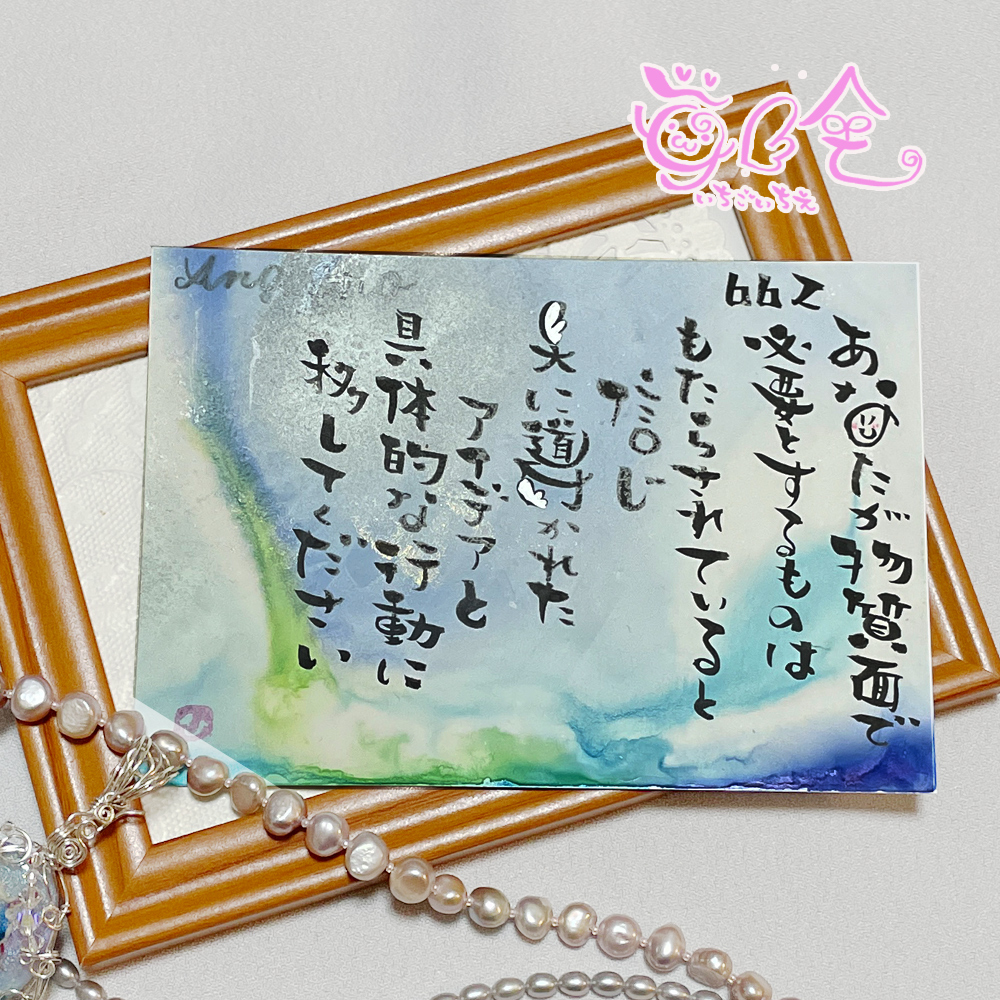 いちごいちえ
662
あなたが物質面で
必要とするものは
もたらされていると
信じ
天に導かれた
アイデアと
具体的な行動に
移してください